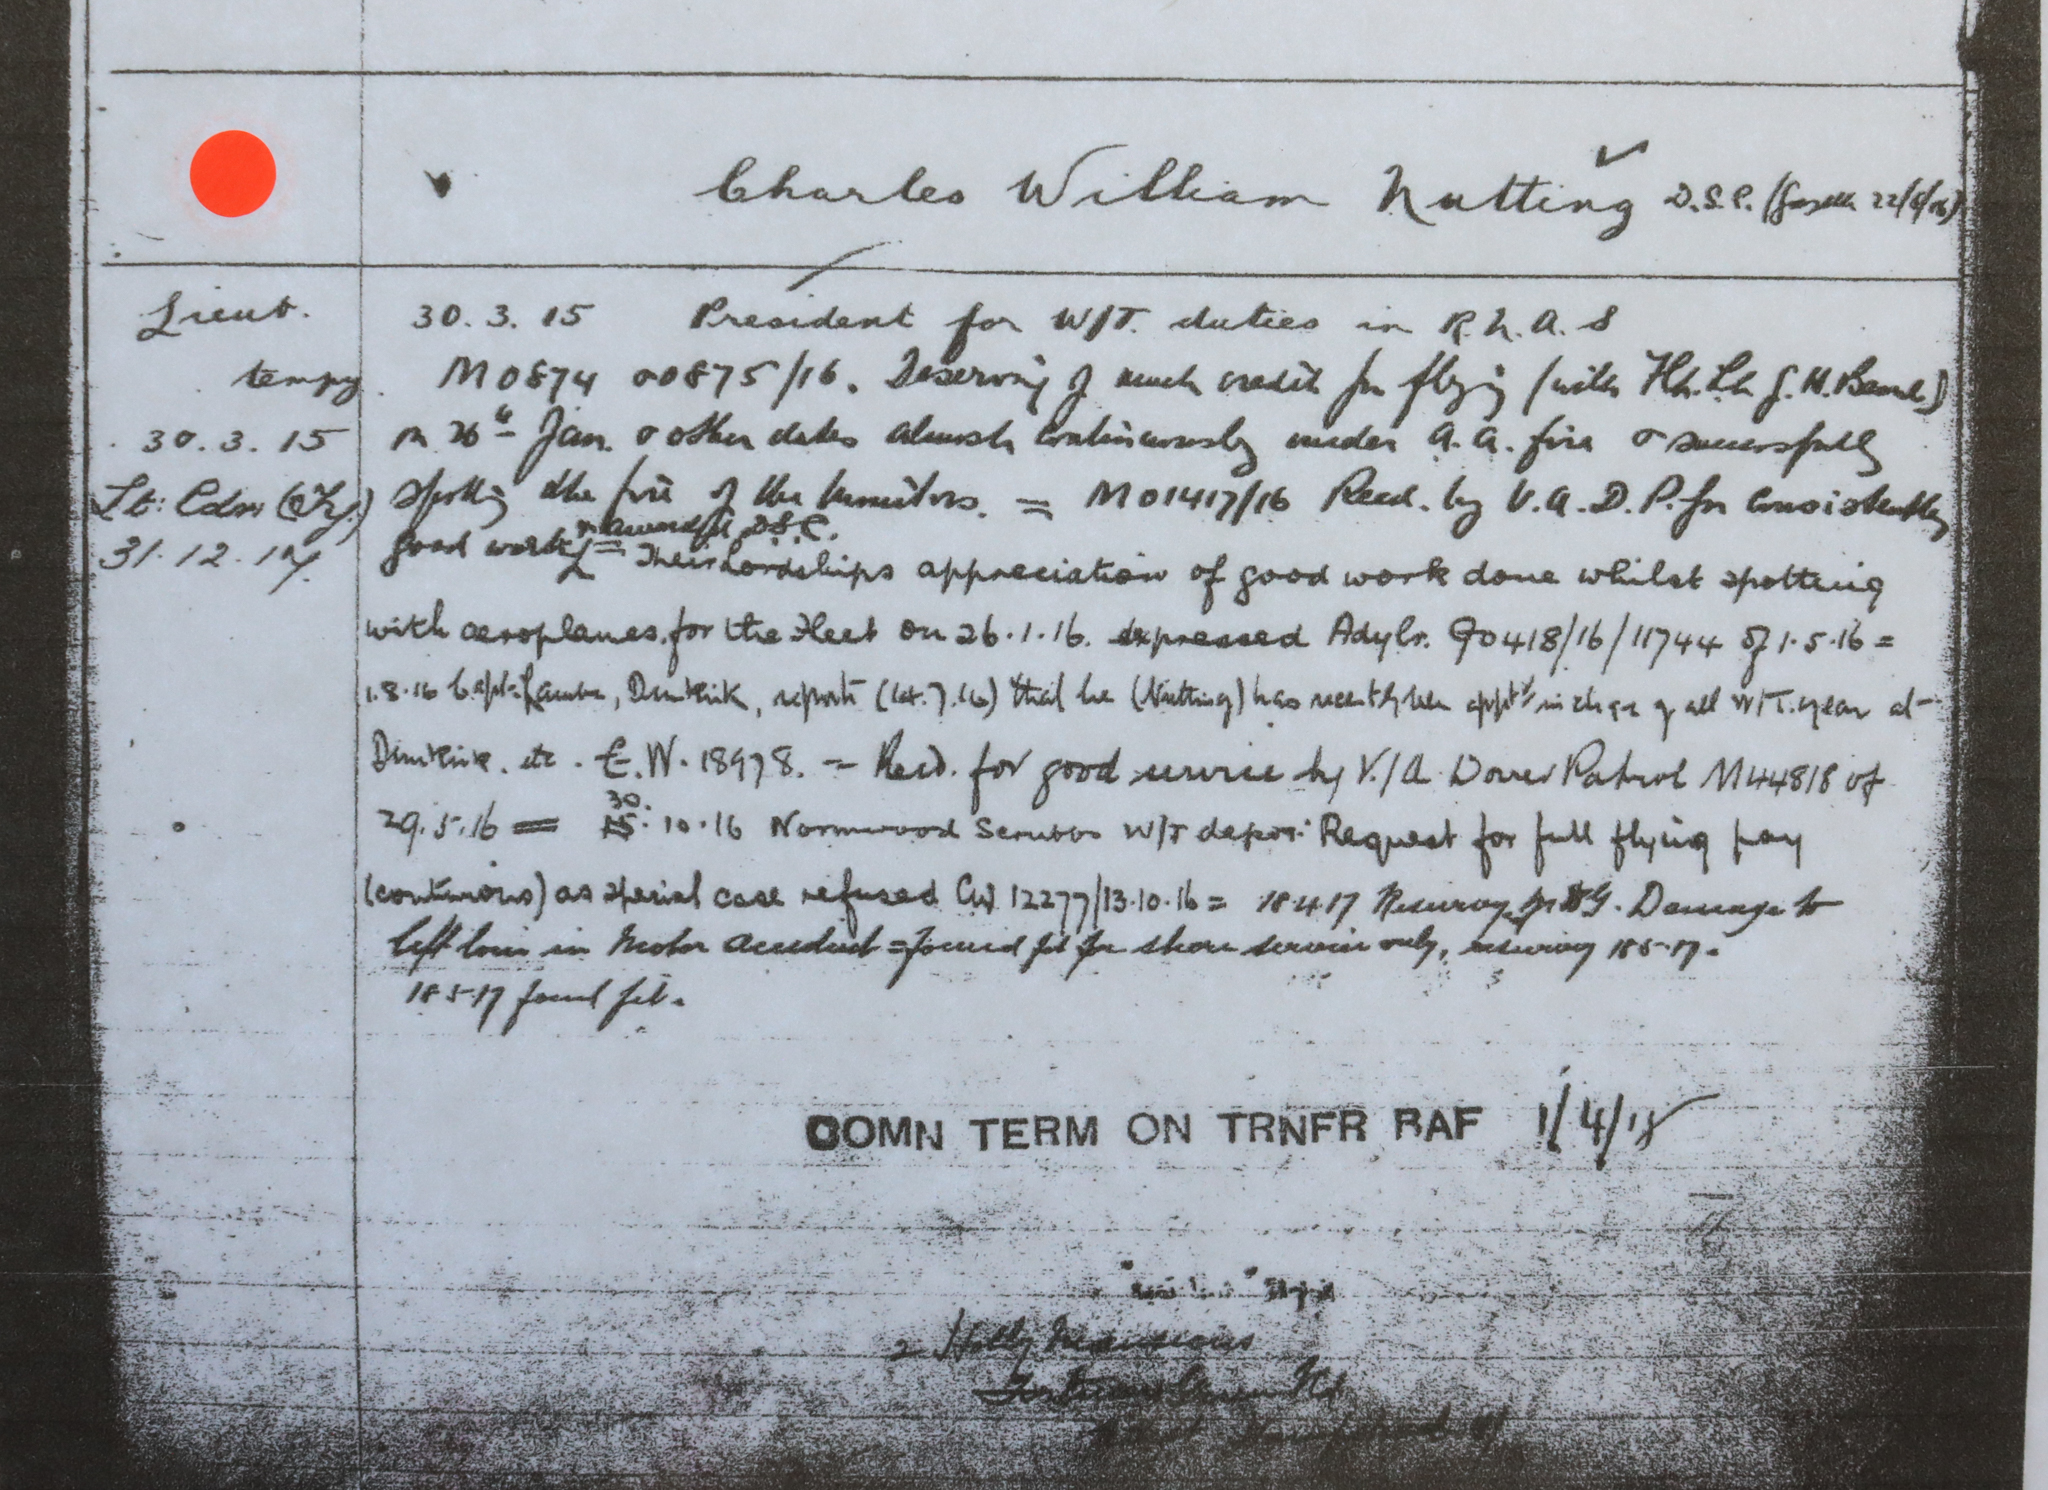 Charles William Nutting D.S.C. (Gazette 22/6/16)
Lieut.
tempy.
30.3.15
Lt: Cdr: (Ty.)
31.12.17
30.3.15 President for W/T. duties in R.N.A.S
M0874 & 0875/16. Deserving of much credit for flying (with Flt. Lt. G.H.
on 26th Jan. & other dates almost continuously under A.A. fire & successfully
spotting the fire of the Monitors. = M01417/16 Recd. by V.A.D.P. for consistently
good work & awarded D.S.C.
= Their Lordships appreciation of good work done whilst spotting
with aeroplanes for the Fleet on 26.1.16. expressed Adylr. G0418/16/11744 of 1.5.16 =
1.8.16 Capt: Lambe, Dunkirk, reports (14.7.16) that he (Nutting) has recently been apptd in charge of all W/T. gear at
Dunkirk. etc. E.W. 18978. = Recd. for good service by V./A Dover Patrol M44818 of
29.5.16 = 30.
15.10.16 Normwood Scrubbs W/T depot. Request for full flying pay
(continuous) as special case refused CW 12277/13.10.16 = 18.4.17 Resurvey Damage to
left loin in Motor Accident = found fit for shore service only, resurvey 18.5.17.
18.5.17 found fit.
COMN TERM ON TRNFR RAF 1/4/18
2 Holly Mansions